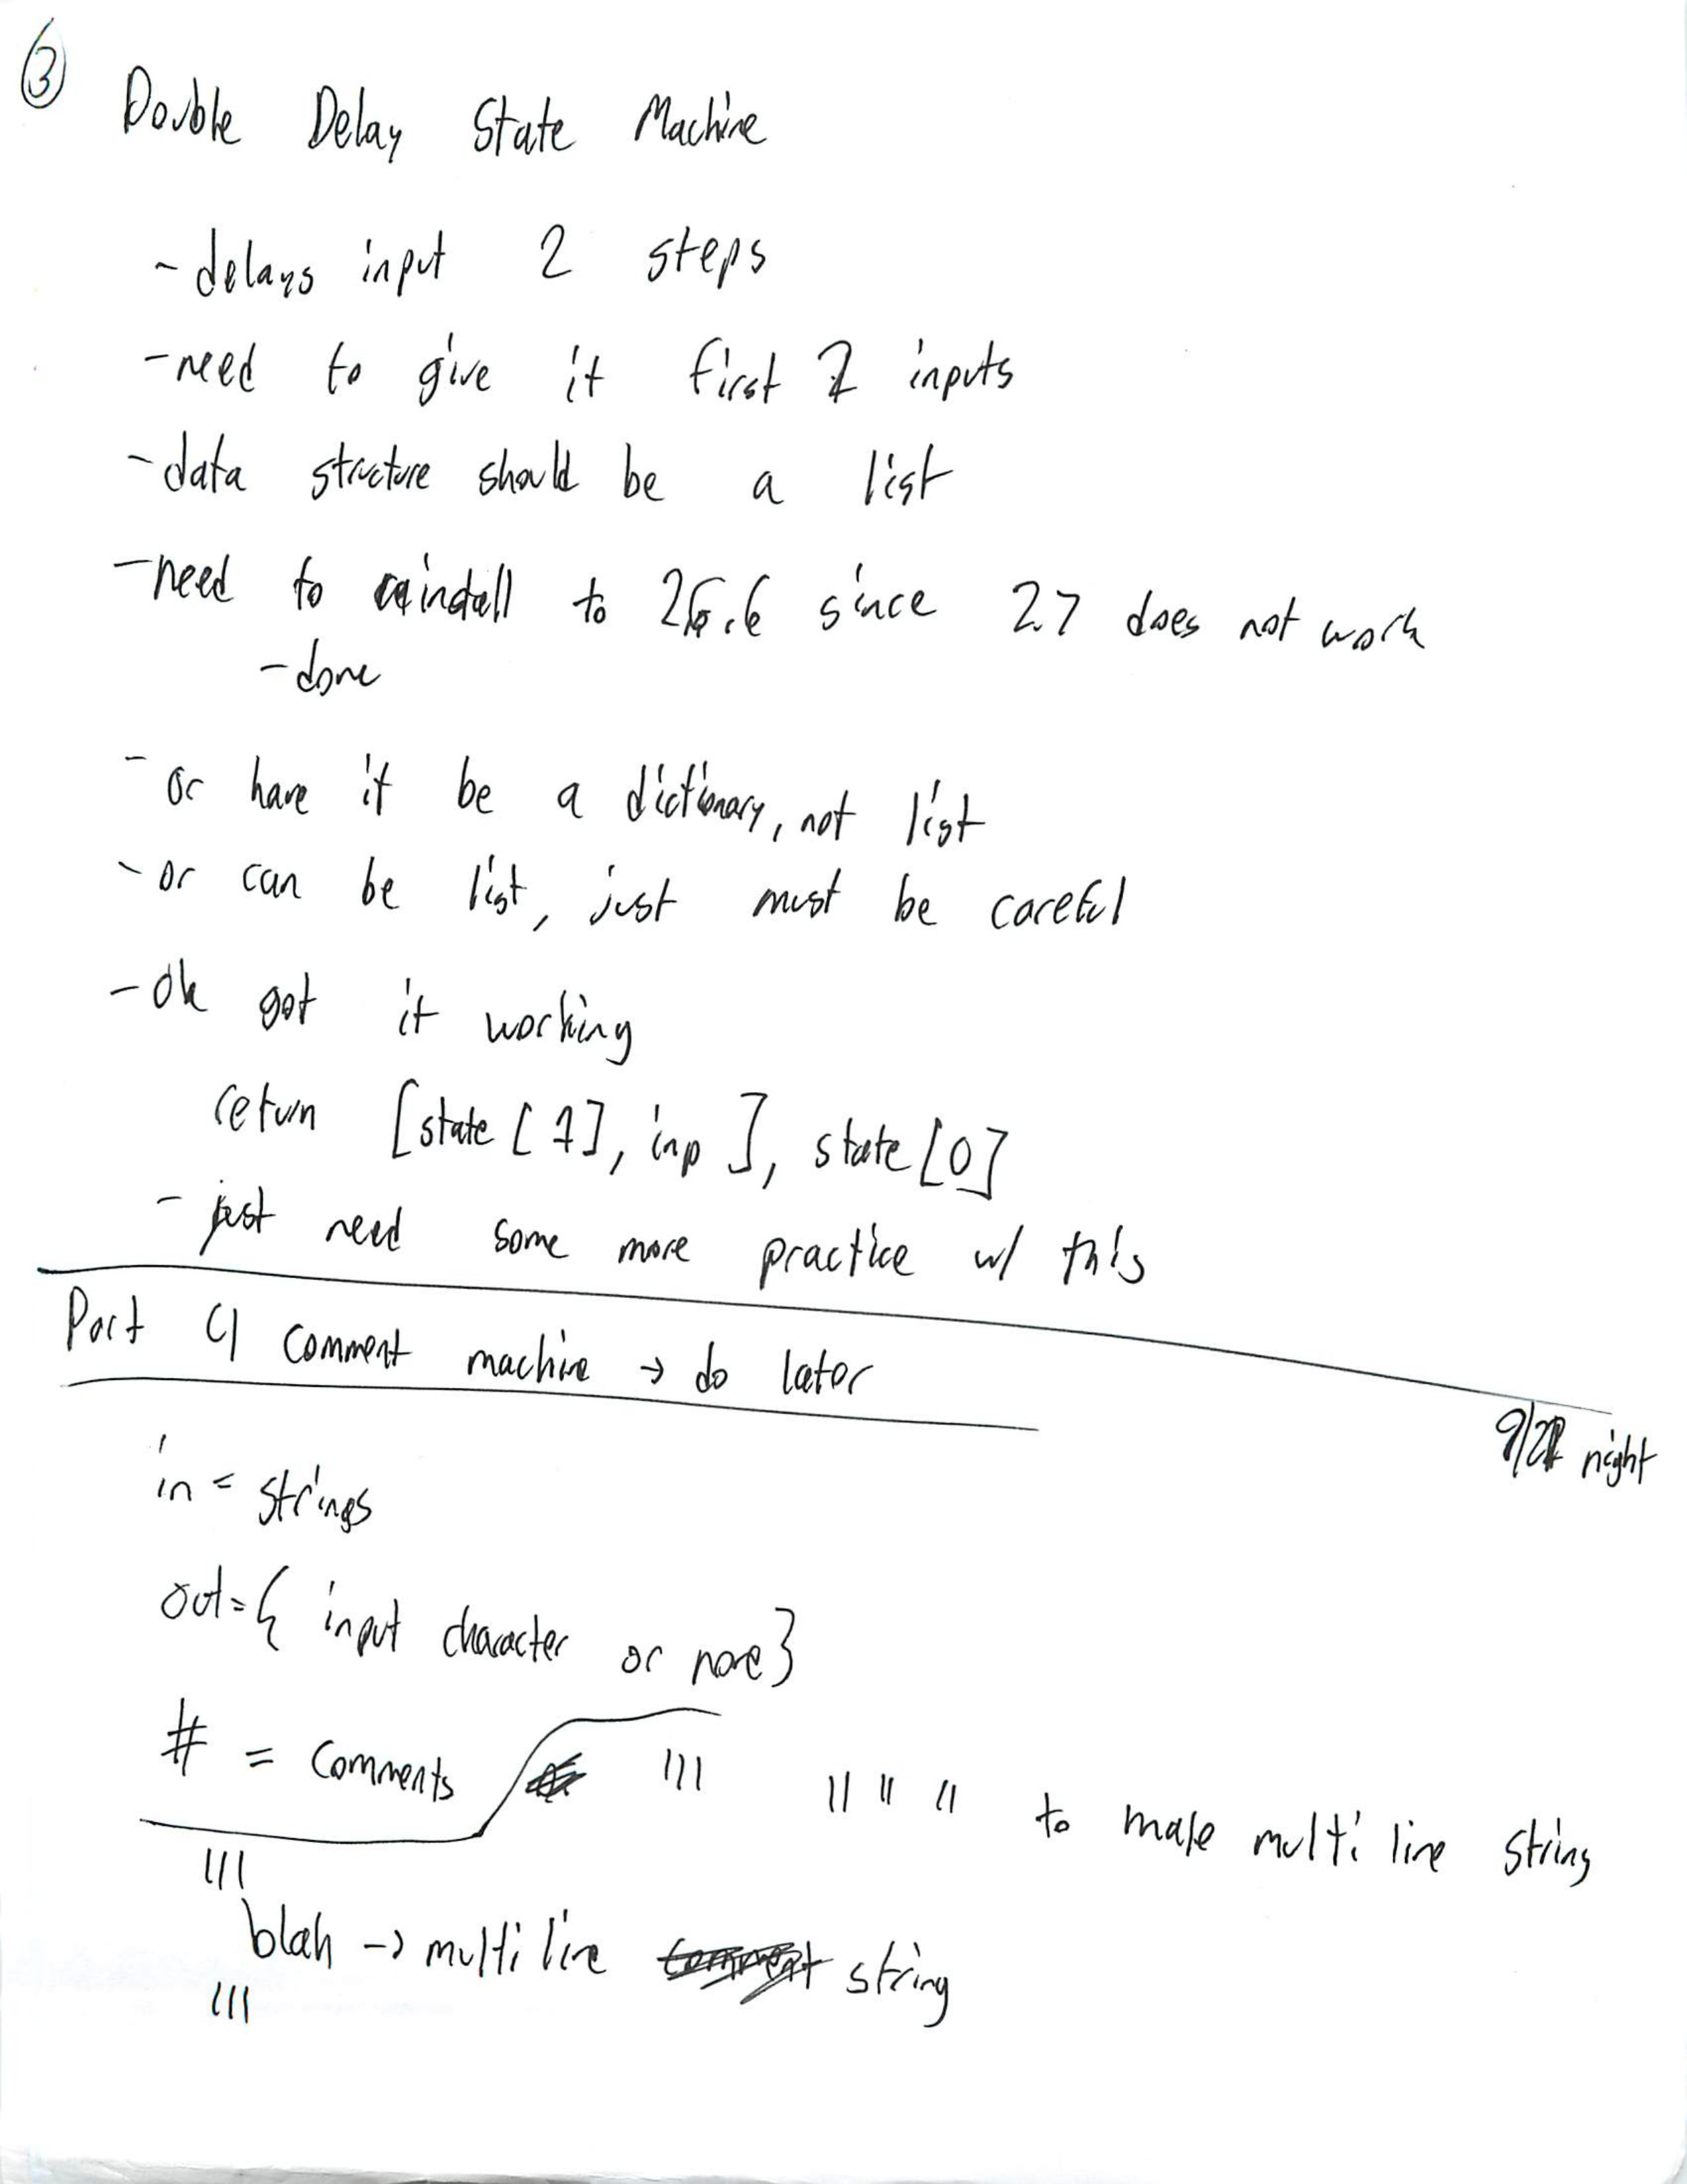 3
Double Delay State Machine
~ delays input 2 steps
- need to give it first 2 inputs
- data structure should be a list
- need to reinstall to 2.6.6 since 2.7 does not work
- done
- or have it be a dictionary, not list
- or can be list, just must be careful
- ok got it working
return [state[1], inp], state[0]
- just need some more practice w/ this
Part C| Comment machine → do later
9/21 night
in = strings
out = { input character or none}
# = Comments
''' " " " to make multi line string
'''
blah → multi line string
'''